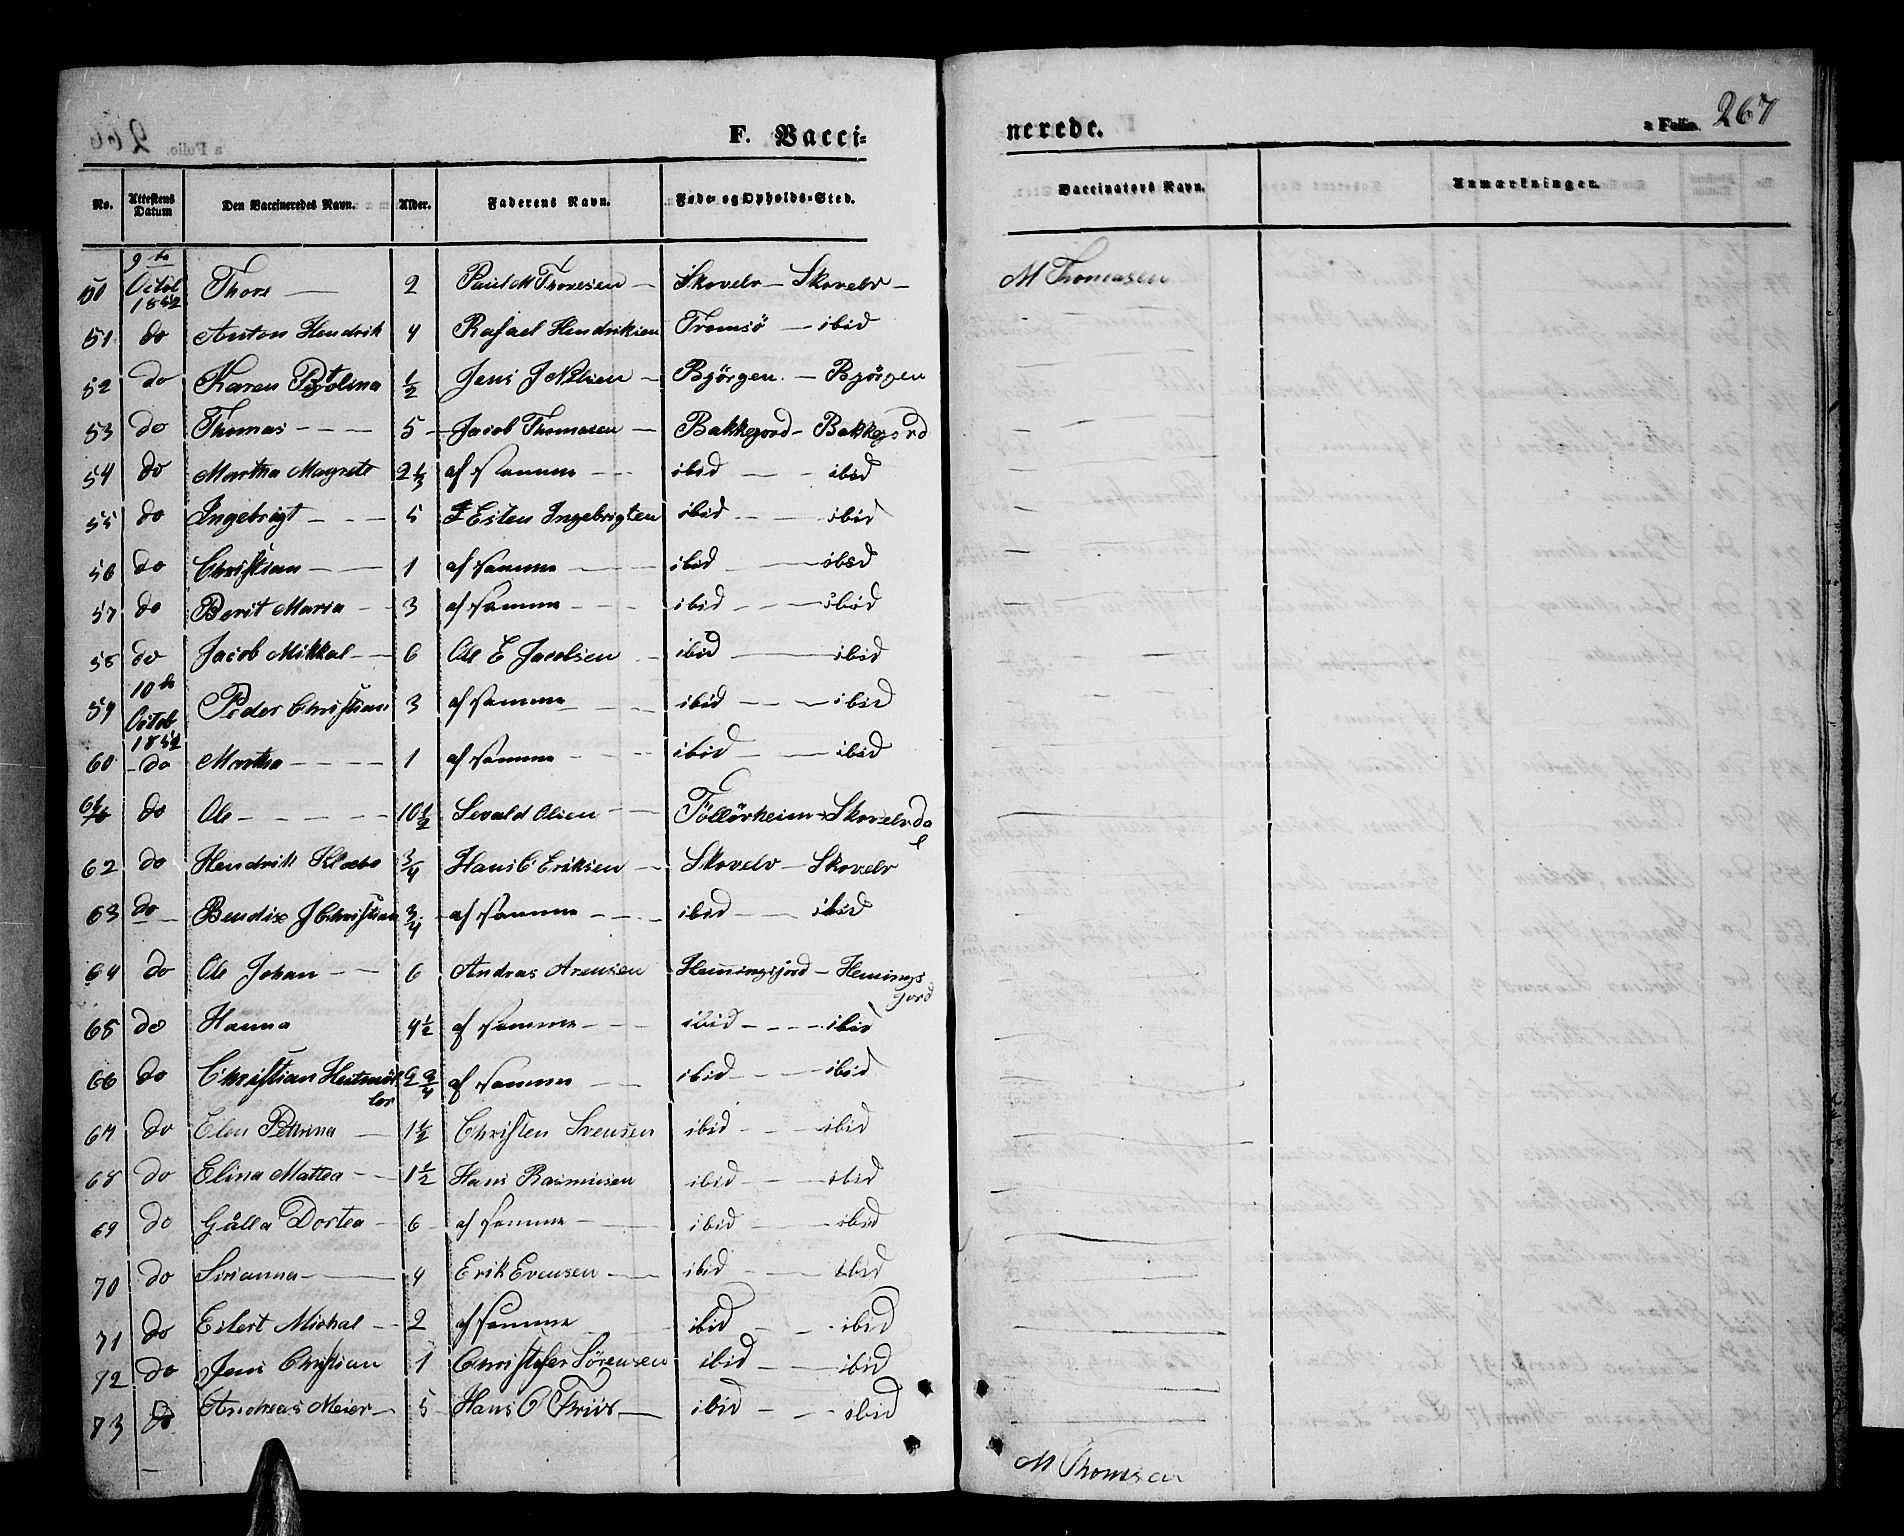 F. Vacci=
nerede.
a Folio. 267
No. Attestens Datum Den Vaccineredes Navn. Alder. Faderens Navn. Føde- og Opholds-Sted. Vaccinators Navn. Anmærkninger.
50 9de Octob 1852 Thore — 2 Paul M Thoresen — Skovelv — Skovelv — M Thomasen
51 do Anton Hendrik 4 Rafael Hendriksen Tromsö — ibid
52 do Karen Petolina 1/2 Jens J Nilsen — Björgen — Björgen
53 do Thomas - - - 5 Jacob Thomasen — Bakkejord — Bakkejord
54 do Martha Magrete 2 1/3 af samme - - ibid - - ibid
55 do Ingebrigt - - - 5 Esten Ingebrigten ibid - - ibid
56 do Christian - - 1 af samme - - ibid - - ibid
57 do Berit Maria - - 3 af samme - - ibid - - ibid
58 do Jacob Mikkal - - 6 Ole E Jacobsen - ibid - - ibid
59 10de Octob 1852 Peder Christian 3 af samme - - ibid - - ibid
60 do Martha - - - 1 af samme - - ibid - - ibid
61 do Ole - - - - 10 1/2 Sevald Olsen - - Föllörheim - Skovelvdal
62 do Hendrik Klæbo 3/4 Hans C Eriksen - Skovelv - Skovelv
63 do Bendix J Christian 3/4 af samme - - ibid - - ibid
64 do Ole Johan - - 6 Andras Arensen Hemingsjord - Hemingsjord
65 do Hanna 4 1/2 af samme - - ibid - - ibid
66 do Christian Heitmöller 2 3/4 af samme - - ibid - - ibid
67 do Elen Pettrina - 1 1/2 Christen Svensen ibid - - ibid
68 do Elina Mattea - - 1 1/2 Hans Rasmusen ibid - - ibid
69 do Gålla Dortea - 6 af samme - - ibid - - ibid
70 do Sirianna - 4 Erik Evensen - - ibid - - ibid
71 do Eilert Michal - 2 af samme ibid - - ibid
72 do Jens Christian 1 Christofer Sörensen ibid - - ibid
73 do Andreas Meier - 5 Hans C Friis - ibid - - ibid M Thomsen